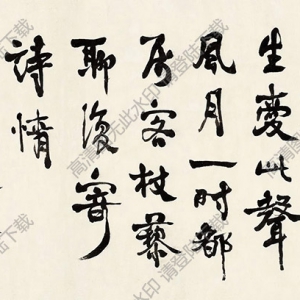 生爱此声
风月一时都
属客杖藜
聊复寄
诗情